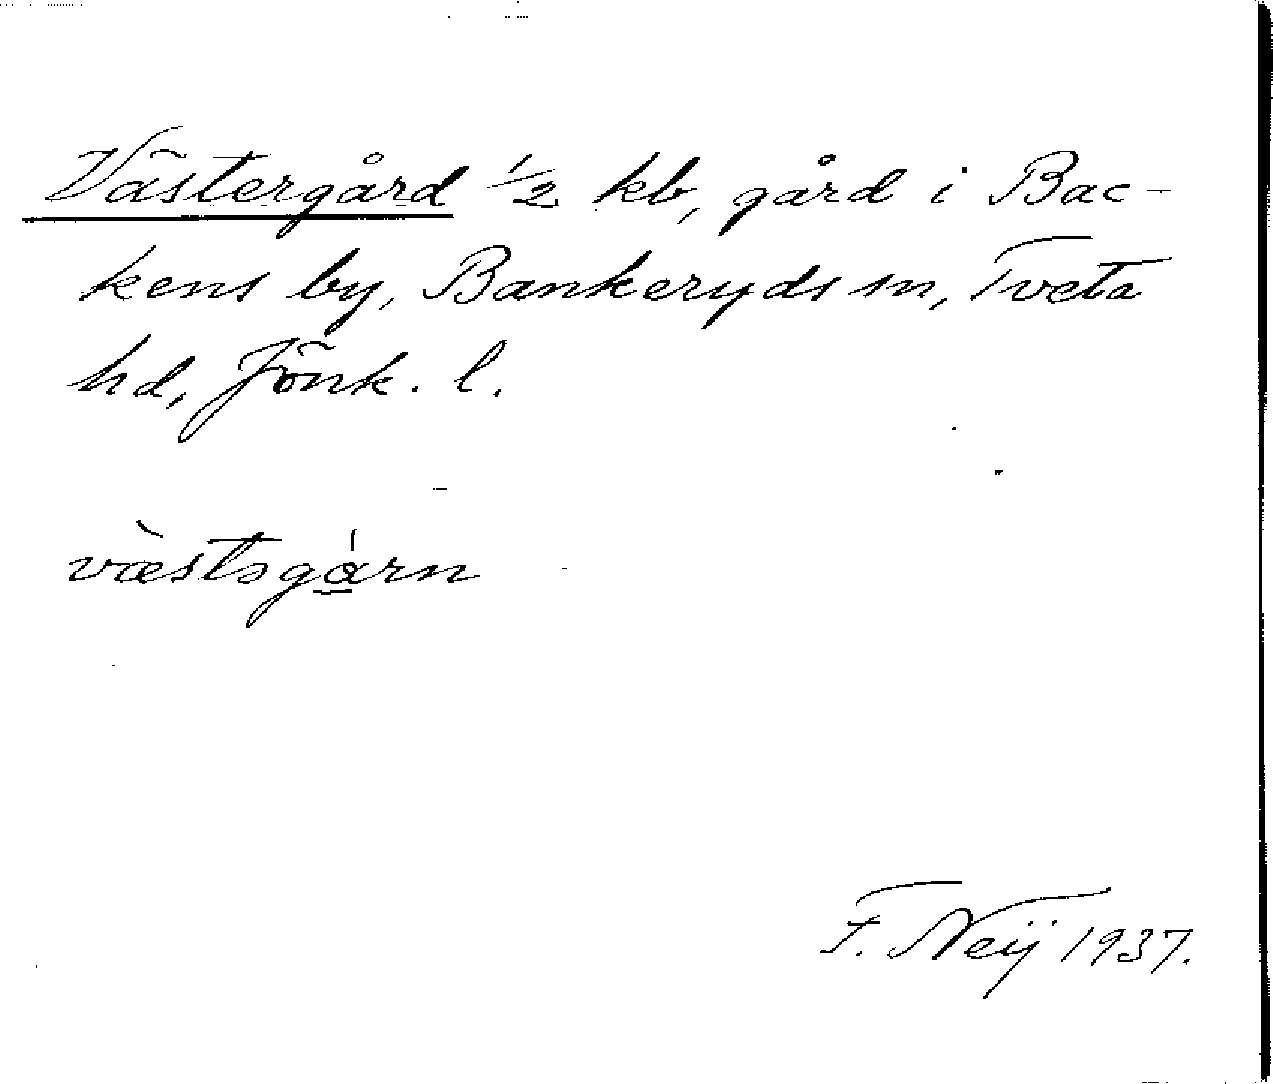 Västergård 1/2 kb, gård i Bac-
kens by, Bankeryds sn, Tveta
hd, Jönk. l.
væ̀stsgá̱rn
F. Neij 1937.